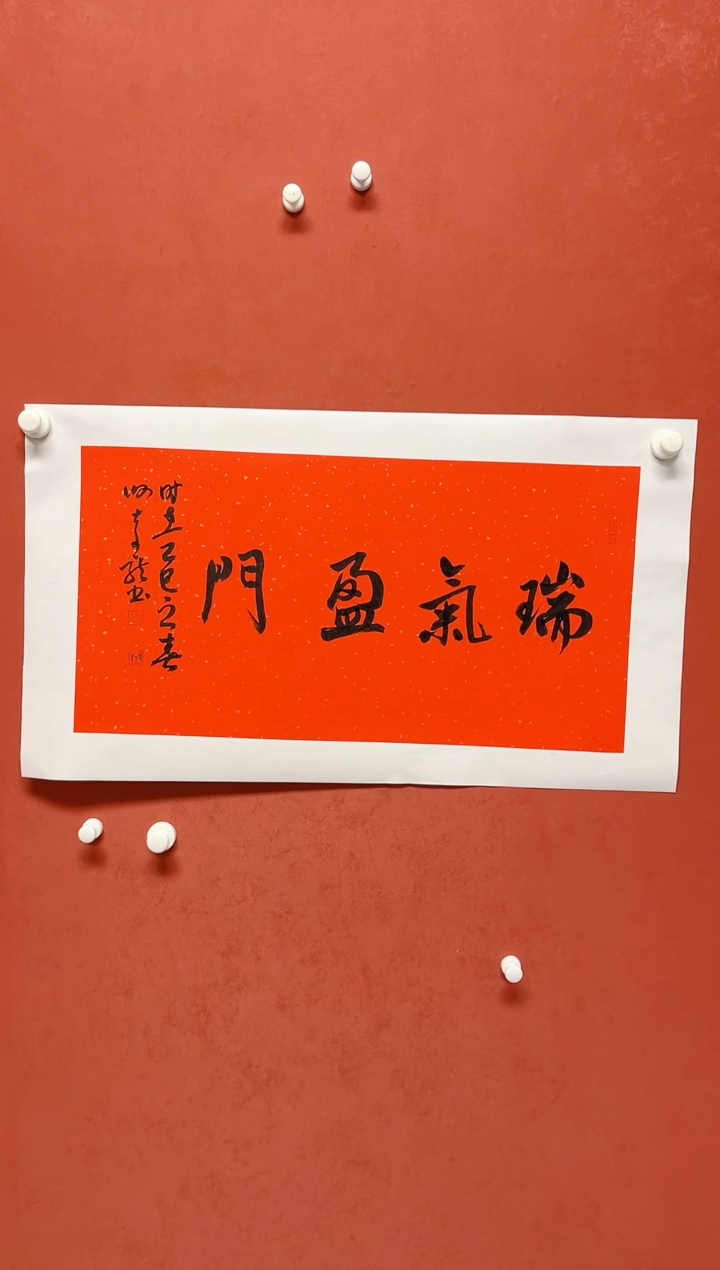 瑞氣盈門
時在乙巳之春
書